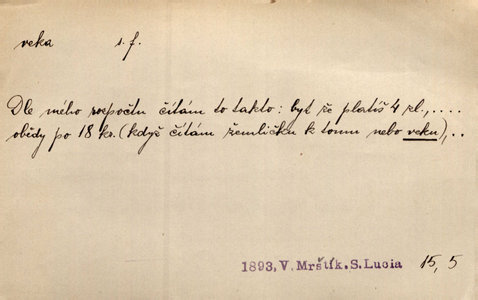 veka s. f.
Dle mého rozpočtu čítám to takto: byt že platíš 4 zl., ....
obědy po 18 kr. (když čítám žemličku k tomu nebo veku), ..
1893, V. Mrštík. S. Lucia 15, 5